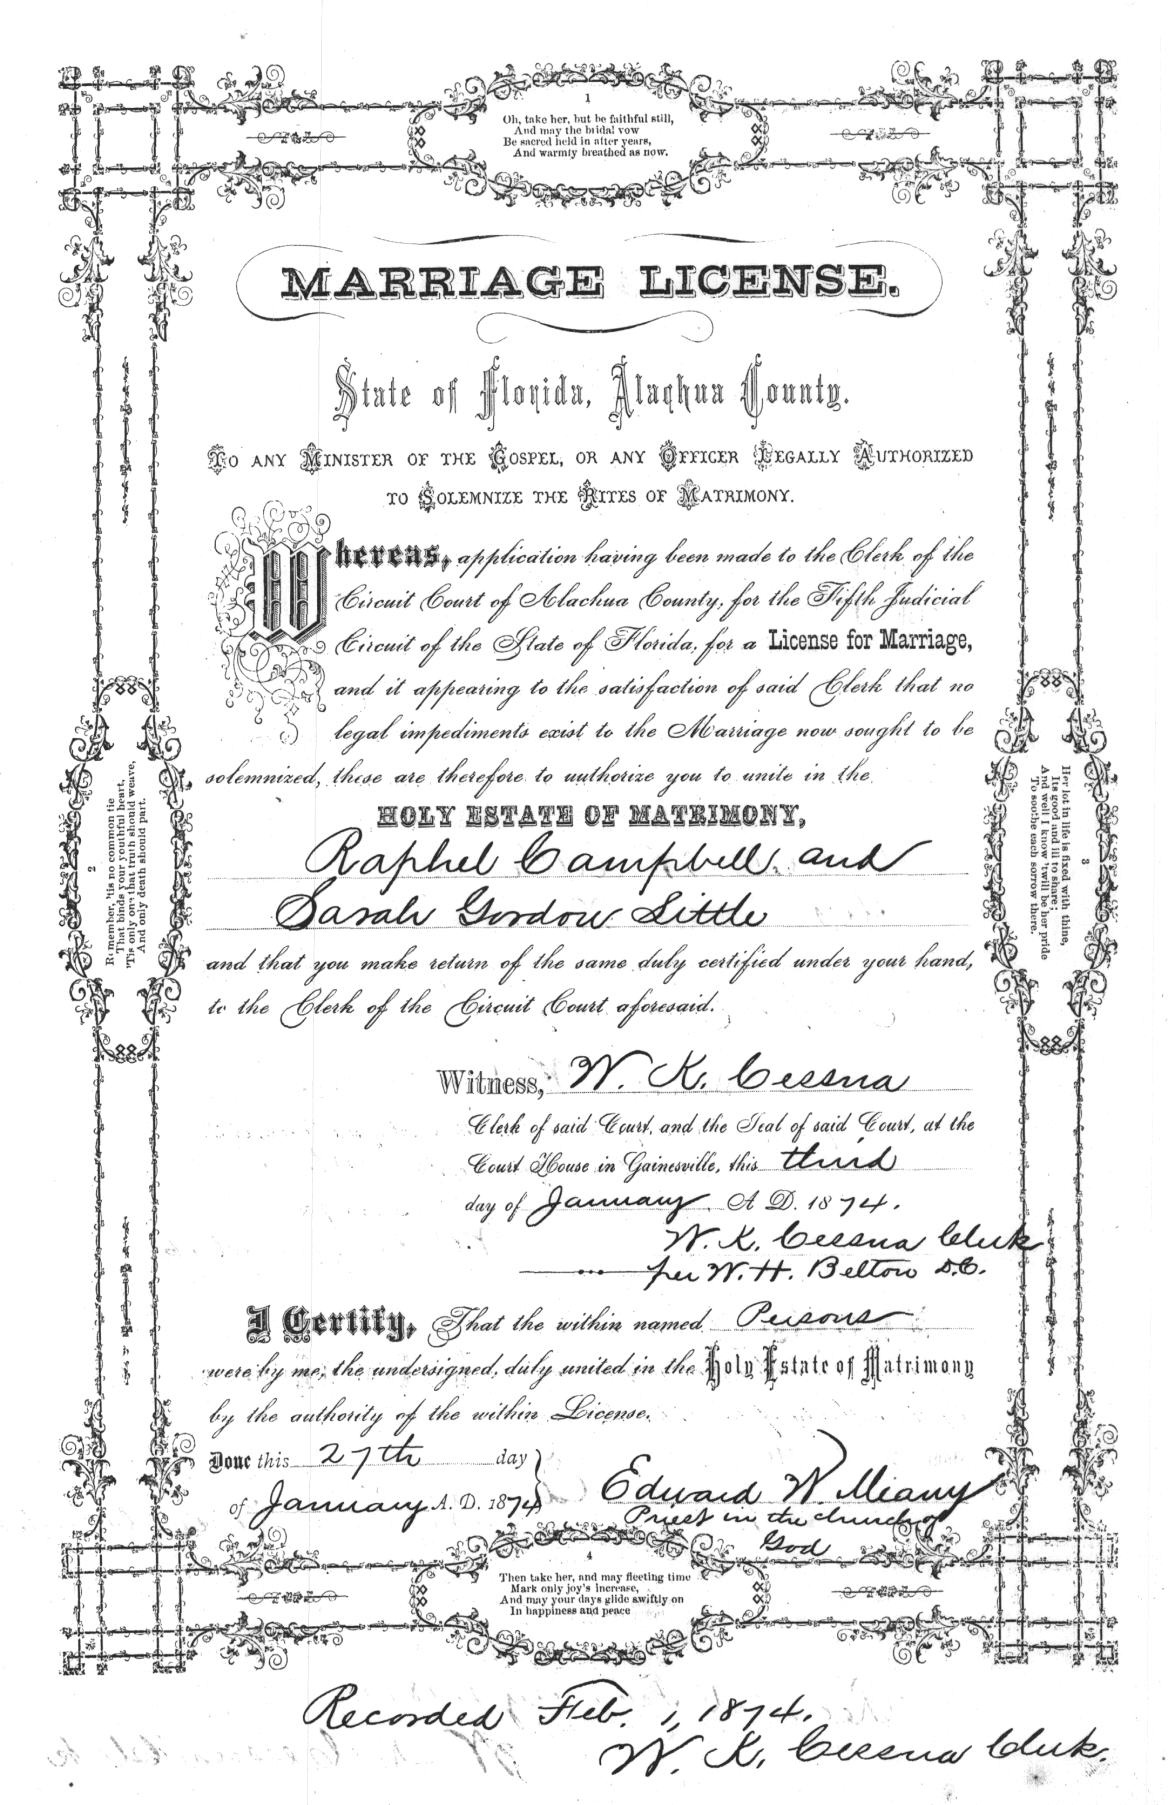 1
Oh, take her, but be faithful still,
And may the bridal vow
Be sacred held in after years,
And warmly breathed as now.
MARRIAGE LICENSE.
State of Florida, Alachua County.
TO ANY MINISTER OF THE GOSPEL, OR ANY OFFICER LEGALLY AUTHORIZED
TO SOLEMNIZE THE RITES OF MATRIMONY.
Whereas, application having been made to the Clerk of the
Circuit Court of Alachua County, for the Fifth Judicial
Circuit of the State of Florida, for a License for Marriage,
and it appearing to the satisfaction of said Clerk that no
legal impediments exist to the Marriage now sought to be
solemnized, these are therefore to authorize you to unite in the
HOLY ESTATE OF MATRIMONY,
Raphel Campbell and
Sarah Gordon Little
and that you make return of the same duly certified under your hand,
to the Clerk of the Circuit Court aforesaid.
2
Remember, 'tis no common tie
That binds your youthful heart,
'Tis only one that truth should weave,
And only death should part.
3
Her lot in life is fixed with thine,
Its good and ill to share;
And well I know 'twill be her pride
To soothe each sorrow there.
Witness, W. K. Cessna
Clerk of said Court, and the Seal of said Court, at the
Court House in Gainesville, this third
day of January A. D. 1874.
W. K. Cessna Clerk
per W. H. Belton D.C.
I Certify, That the within named Persons
were by me, the undersigned, duly united in the Holy Estate of Matrimony
by the authority of the within License.
Done this 27th day
of January A. D. 1874
Edward W. Meany
Priest in the church of
God
4
Then take her, and may fleeting time
Mark only joy's increase,
And may your days glide swiftly on
In happiness and peace
Recorded Feb. 1, 1874.
W. K. Cessna Clerk.